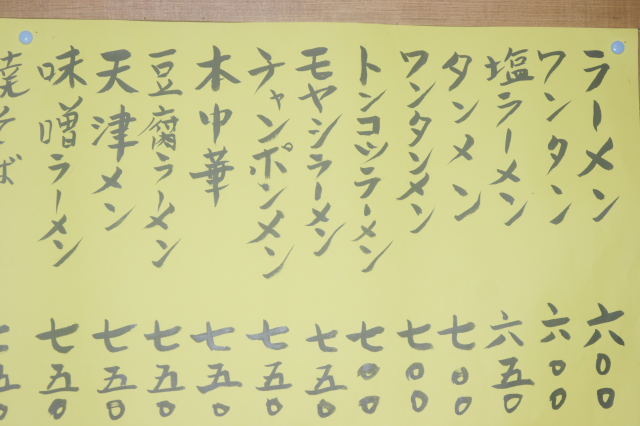 ラーメン 六〇〇
ワンタン 六〇〇
塩ラーメン 六五〇
タンメン 七〇〇
ワンタンメン 七〇〇
トンコツラーメン 七〇〇
モヤシラーメン 七五〇
チャンポンメン 七五〇
木中華 七五〇
豆腐ラーメン 七五〇
天津メン 七五〇
味噌ラーメン 七五〇
焼そば 七五〇